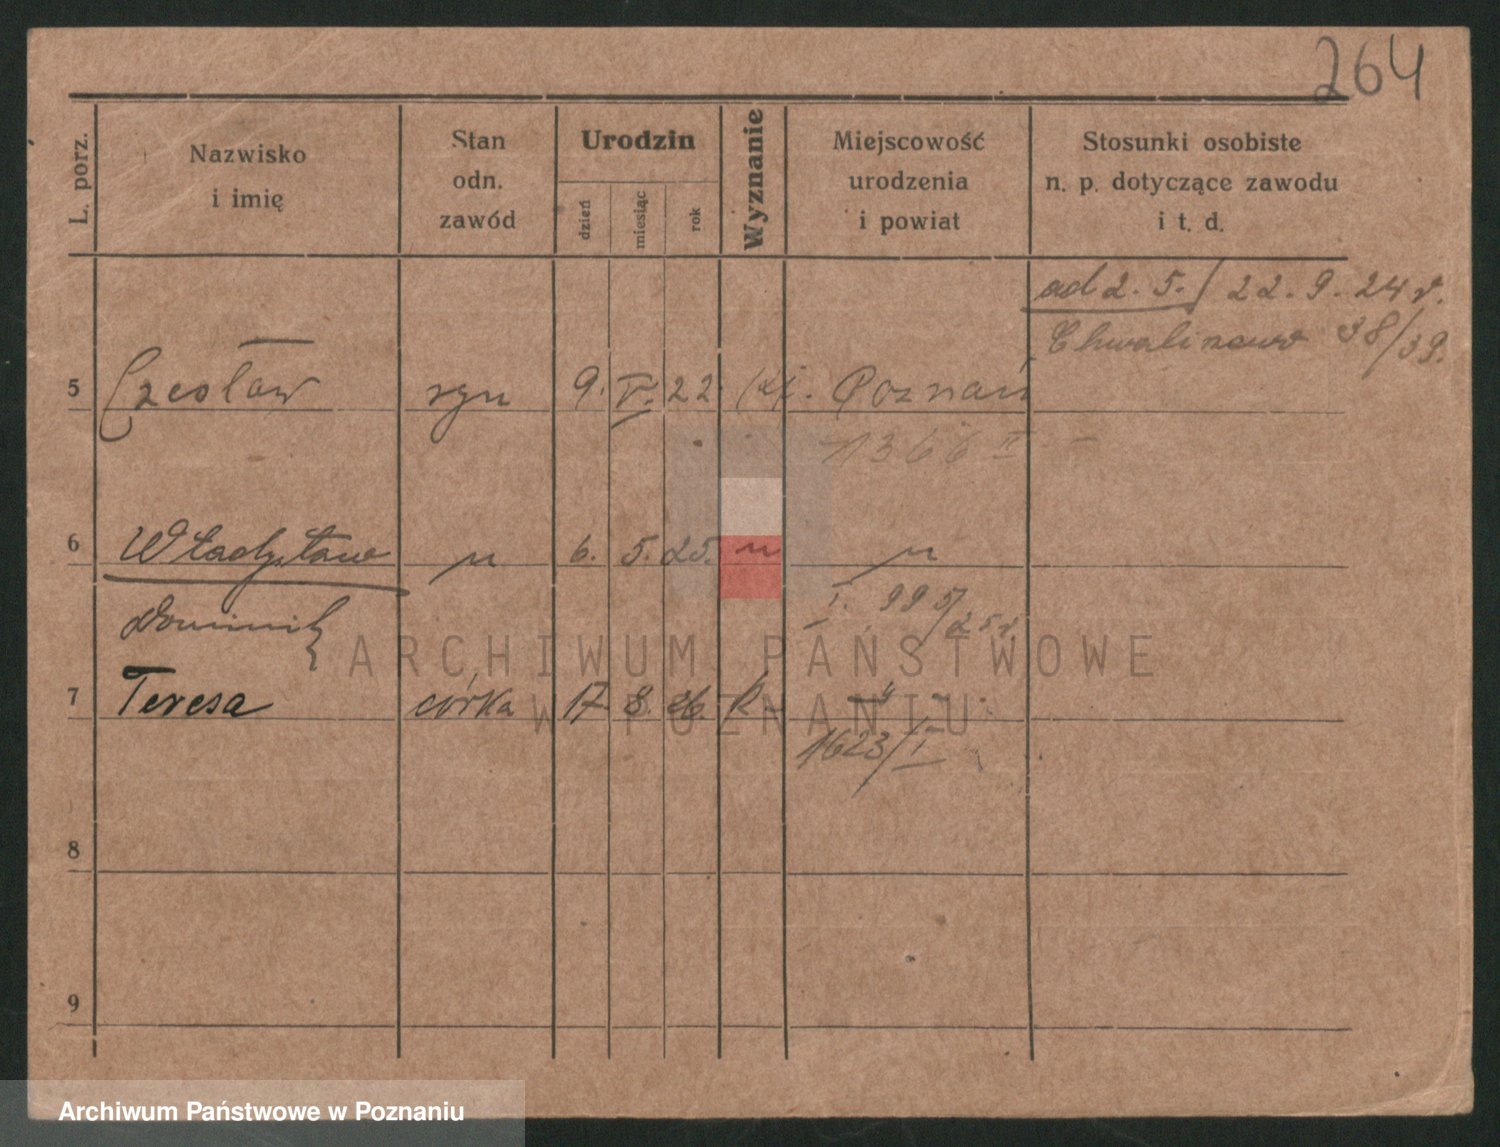 264
L. porz.
Nazwisko
i imię
Stan
odn.
zawód
Urodzin
dzień
miesiąc
rok
Wyznanie
Miejscowość
urodzenia
i powiat
Stosunki osobiste
n. p. dotyczące zawodu
i t. d.
ad 2. 5. / 22. 9. 24 r.
38/39.
5 Czesław syn 9. V. 22 Poznań
1366 II -
6 Władysław " 6. 5. 25. " "
I. 995/25 r.
Dominik
7 Teresa córka 17 8. 26. k - " -
1623/I
8
9
ARCHIWUM PAŃSTWOWE
W POZNANIU
Archiwum Państwowe w Poznaniu